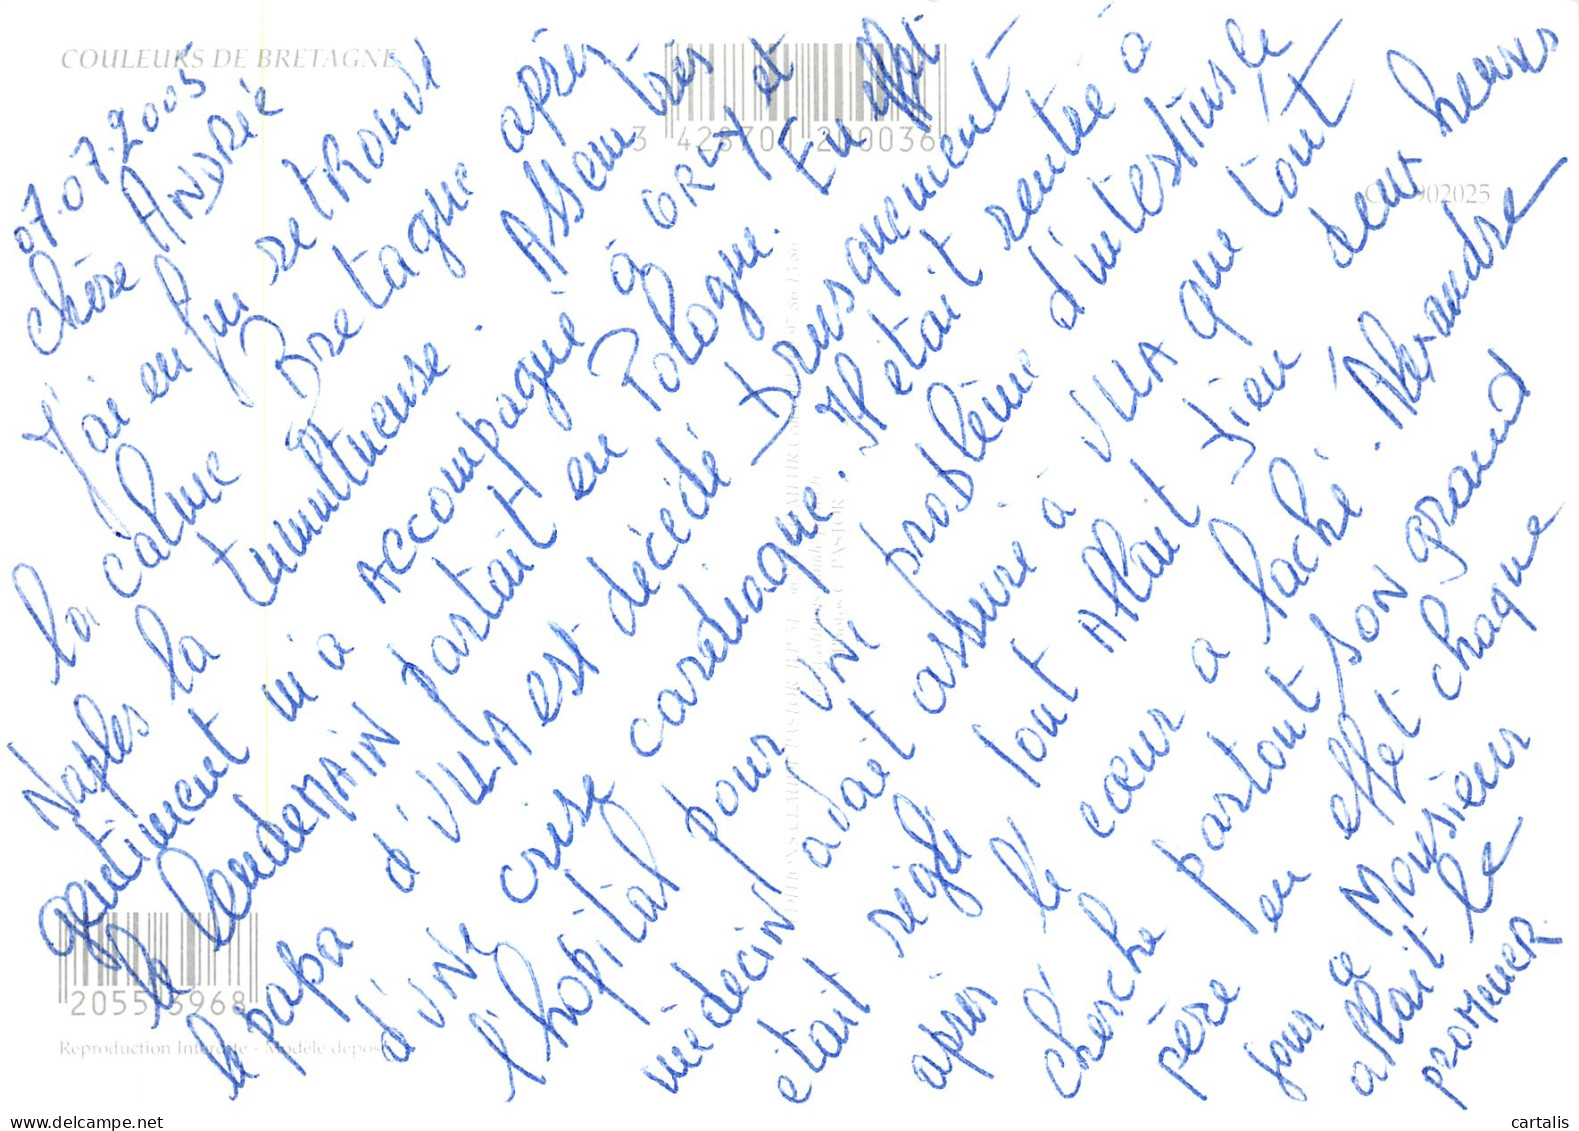 COULEURS DE BRETAGNE
07.07.2005
Chère ANDRée
J'ai enfin retrouvé
la calme Bretagne après
Naples la tumultueuse. Assem très
gentiment m'a accompagné à ORLY et
le lendemain partait en Pologne. En effet
le papa d'ULLA est décédé brusquement
d'une crise cardiaque. Il était rentré à
l'hopital pour une problème d'intestins le
médecin avait assuré à ULLA que tout
etait réglé tout allait bien deux heures
après le cœur a laché. Alexandre
cherche partout son grand
père en effet chaque
jour ce Monsieur
allait le
promener.
3 428701 200036
902025
2055 6968
Reproduction Interdite - Modèle déposé
cartalis www.delcampe.net